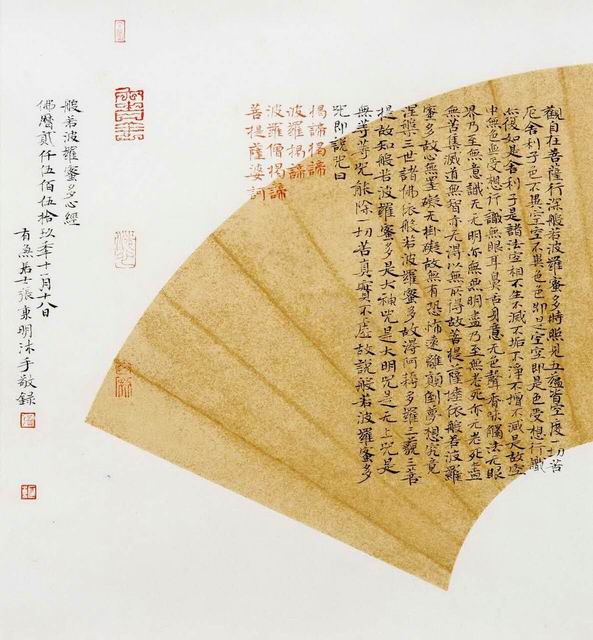 觀自在菩薩行深般若波羅蜜多時照見五蘊皆空度一切苦
厄舍利子色不異空空不異色色即是空空即是色受想行識
亦復如是舍利子是諸法空相不生不滅不垢不淨不增不減是故空
中無色無受想行識無眼耳鼻舌身意无色聲香味觸法无眼
界乃至無意識无无明亦無無明盡乃至無老死亦无老死盡
無苦集滅道無智亦无得以無所得故菩提薩埵依般若波羅
蜜多故心無罣礙无掛礙故無有恐怖遠離顛倒夢想究竟
涅槃三世諸佛依般若波羅蜜多故得阿耨多羅三藐三菩
提故知般若波羅蜜多是大神咒是大明咒是无上咒是
無等等咒能除一切苦真實不虛故說般若波羅蜜多
咒即說咒曰
揭諦揭諦
波羅揭諦
波羅僧揭諦
菩提薩婆訶
般若波羅蜜多心經
佛曆貳仟伍佰伍拾玖年十一月十八日
有無居士張東明沐手敬錄